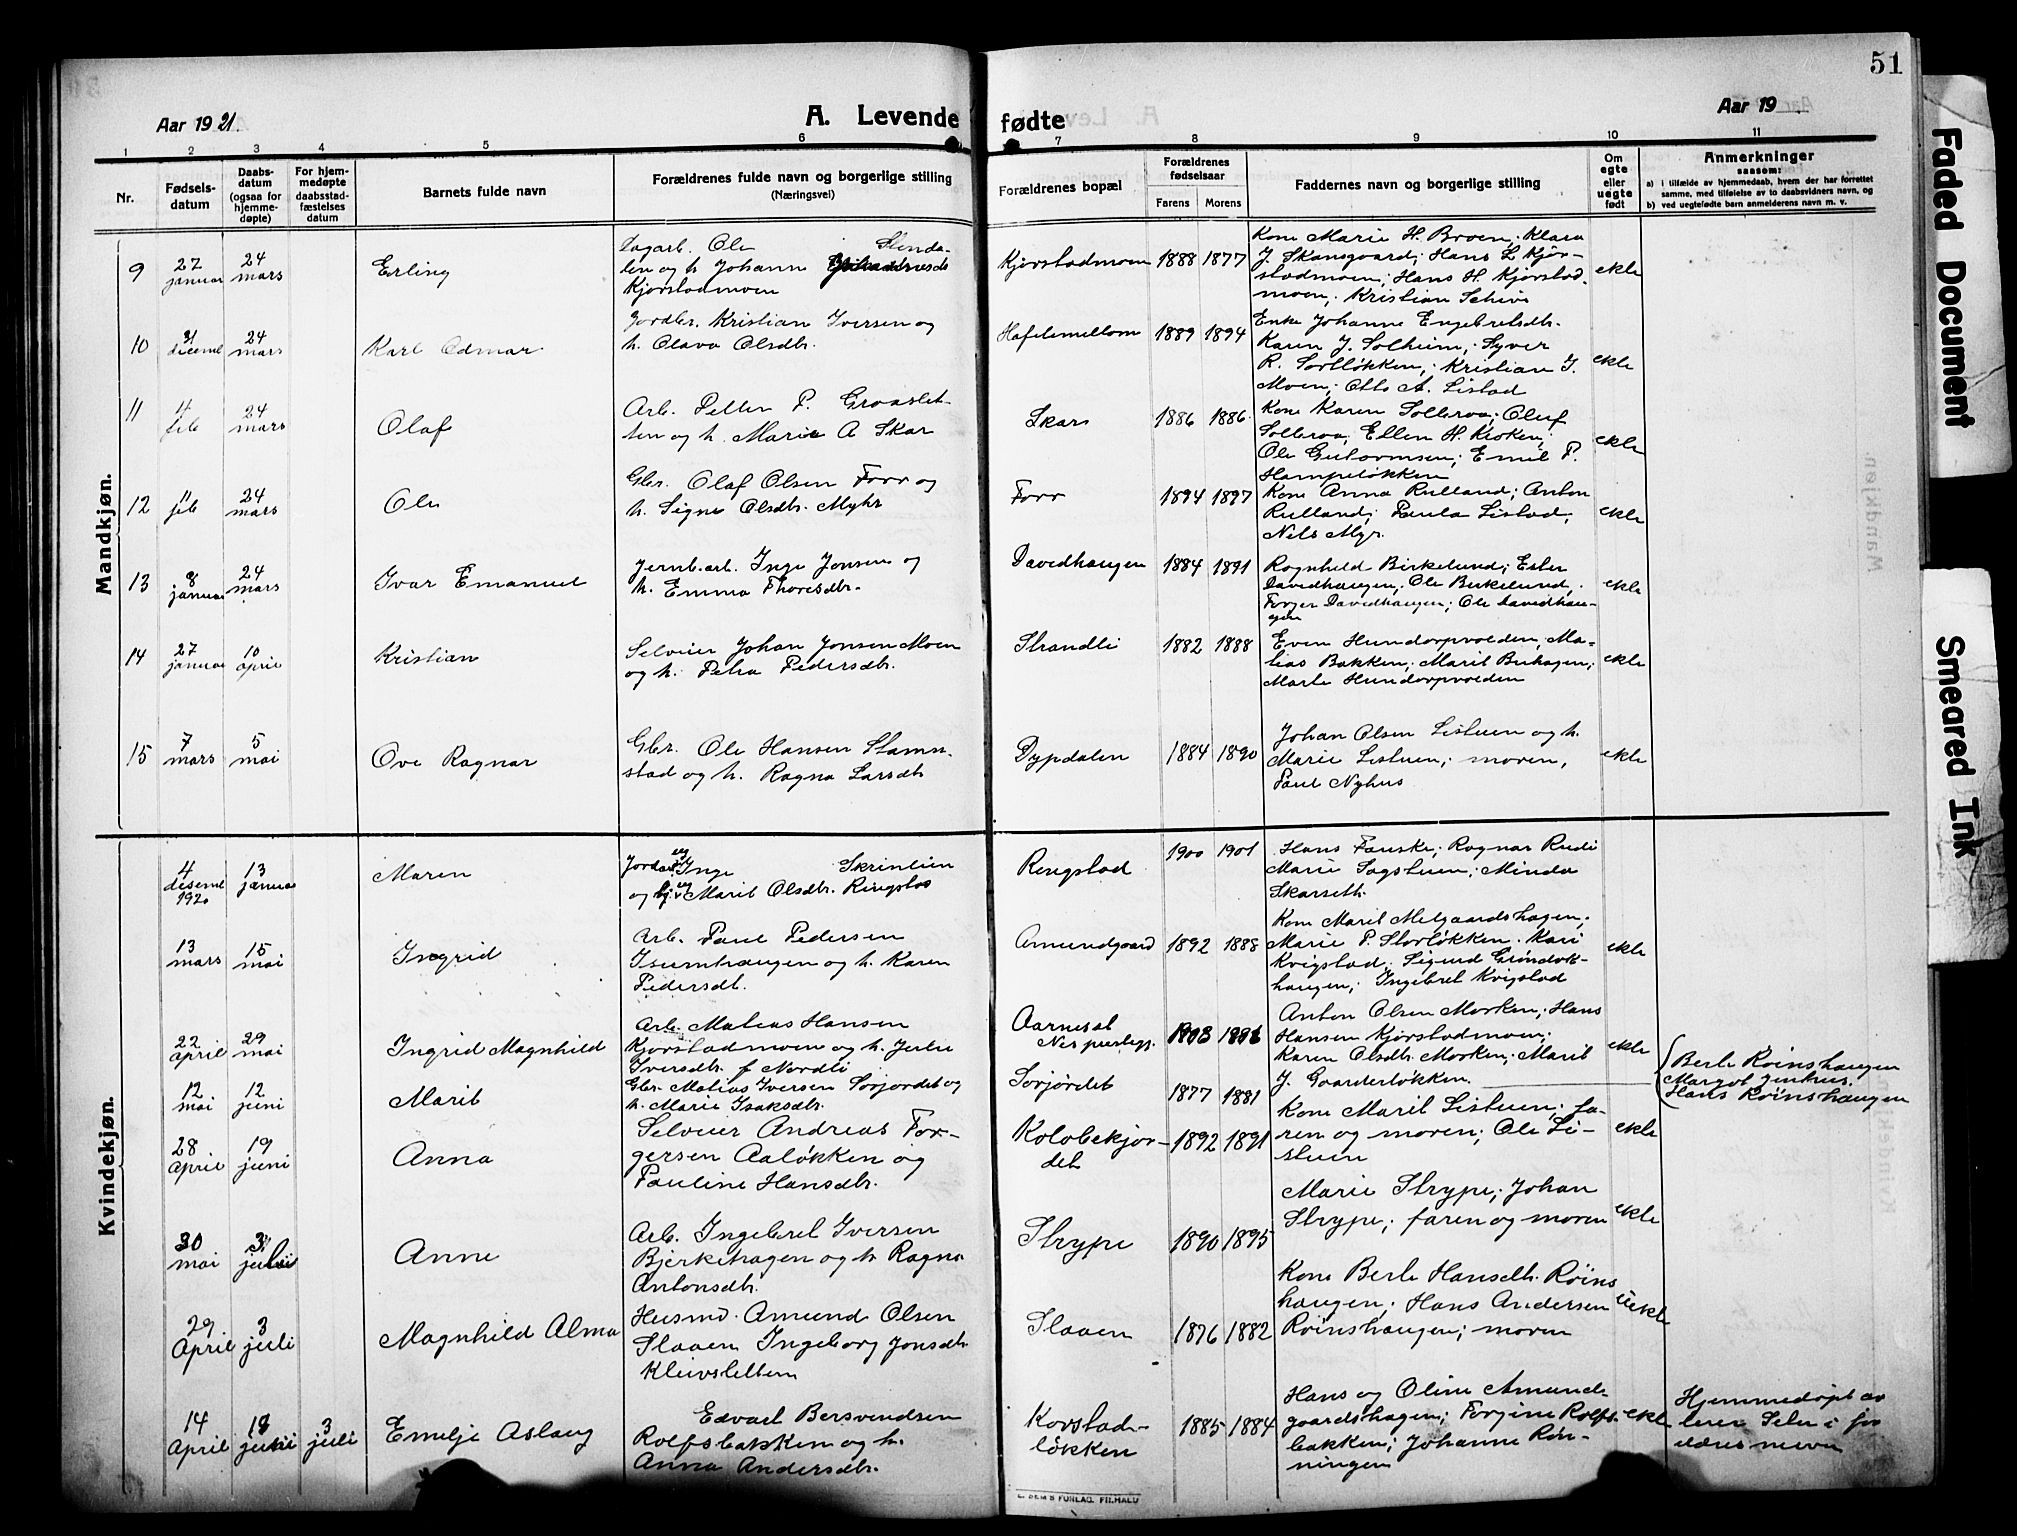 51
Aar 1921.
A. Levende fødte
Aar 19
1 2 3 4 5 6 7 8 9 10 11
Nr.
Fødsels-
datum
Daabs-
datum
(ogsaa for
hjemme-
døpte)
For hjem-
medøpte
daabsstad-
fæstelses
datum
Barnets fulde navn
Forældrenes fulde navn og borgerlige stilling
(Næringsvei)
Forældrenes bopæl
Forældrenes
fødselsaar
Farens Morens
Faddernes navn og borgerlige stilling
Om
egte
eller
uegte
født
Anmerkninger
saasom:
a) i tilfælde av hjemmedaab, hvem der har forrettet
samme, med tilføielse av to daabsvidners navn, og
b) ved uegtefødte barn anmelderens navn m. v.
Mandkjøn.
9
27
januar
24
mars
Erling
Dagarb. Ole Slenda-
len og h. Johanne
Kjorstadmoen
Kjorstadmoen
1888 1877
Kone Marie H. Broen; Klara
J. Skansgaard; Hans L. Kjor-
stadmoen; Hans H. Kjorstad-
moen; Kristian Schive
ekte
10
31
desembr
24
mars
Karl Odmar
Jordbr. Kristian Iversen og
h. Olava Olsdtr.
Hafelmellom
1889 1894
Enke Johanne Engebretsdtr.
Karen J. Solheim; Syver
R. Sortløkken; Kristian J.
Moen; Otto A. Listad
ekte
11
4
feb
24
mars
Olaf
Arb. Petter P. Graaslet-
ten og h. Marie A Skar
Skar
1886 1886
Kone Karen Solbraa; Oluf
Solbraa; Ellen H. Kroken;
Ole Guttormsen; Emil P.
Hampeløkken
ekte
12
11
feb
24
mars
Ole
Gbr. Olaf Olsen Forr og
h. Signe Olsdtr. Myhr
Forr
1894 1897
Kone Anna Rulland; Anton
Rulland; Paula Listad,
Nils Myr.
ekte
13
8
januar
24
mars
Ivar Emanuel
Jernb.arb. Inge Jonsen og
h. Emma Thoresdtr.
Davedhaugen
1884 1891
Rognheld Birkelund; Ester
Davedhaugen; Ole Birkelund;
Torger Davedhaugen; Ole Davedhau-
gen
ekte
14
27
januar
10
april
Kristian
Selveier Johan Jonsen Moen
og h. Petra Pedersdtr.
Strandli
1882 1888
Even Hundorpvolden; Ma-
tias Bakken; Marit Buhagen;
Marte Hundorpvolden
ekte
15
7
mars
5
mai
Ove Ragnar
Gbr. Ole Hansen Stamn-
stad og h. Ragna Larsdtr
Dypdalen
1884 1890
Johan Olsen Listuen og h.
Marie Listuen; moren,
Paul Nyhus
ekte
Kvindekjøn.
4
desembr
1920
13
januar
Maren
Inge Skrinlien
og Marit Olsdtr. Ringstad
Ringstad
1900 1901
Hans Fauske; Ragnar Rudi
Marie Sagstuen; Minda
Skarseth.
13
mars
15
mai
Ingrid
Arb. Paul Pedersen
Isumhaugen og h. Karen
Pedersdt.
Amundgaard
1892 1888
Kone Marit Melgaardshagen;
Marie P. Storløkken. Kari
Kvigstad; Sigurd Grøndok-
haugen; Ingebret Kvigstad
ekte
22
april
29
mai
Ingrid Magnhild
Arb. Matias Hansen
Kjorstadmoen og h. Julie
Iversdtr. f Nordli
Aarnesat
Anton Olsen Morken; Hans
Hansen Kjorstadmoen;
Karen Olsdtr. Morken; Marit
J. Gaarderløkken.
ekte
12
mai
12
juni
Marit
Gbr. Matias Iversen Sorjordet og
h. Marie Isaksdtr.
Sorjordet
1877 1881
Berte Roinshaugen
Margot Jentrus.
Hans Roinshaugen
28
april
19
juni
Anna
Selveier Andreas Tor-
gersen Aaløkken og
Pauline Hansdtr.
Kolobekjor-
det
1892 1891
Kone Marit Listuen; fa-
ren og moren; Ole Li-
stuen
ekte
30
mai
3
juli
Anne
Arb. Ingebret Iversen
Bjerkehagen og h. Ragna
Antonsdtr.
Strype
1890 1895
Marie Strype; Johan
Strype; faren og moren
ekte
29
April
3
juli
Magnhild Alma
Husmd. Amund Olsen
Slaaen Ingeborg Jonsdtr.
Kleivsletten
Slaaen
1876 1882
Kone Berte Hansdtr. Roins
haugen; Hans Andersen
Roinshaugen; moren
uekte
14
April
18
juni
3
juli
Emelje Aslaug
Edvart Bersvendsen
Rolfsbakken og h.
Anna Andersdtr.
Korstad-
løkken
1885 1884
Hans og Oline Amund-
gaardshagen; Torgine Rolfs-
bakken; Johanne Røn-
ningen
ekte
Hjemmedøpt av
lærer Sele i for
ældres nærv
E. SEM'S FORLAG. FR.HALD
Faded Document
Smeared Ink